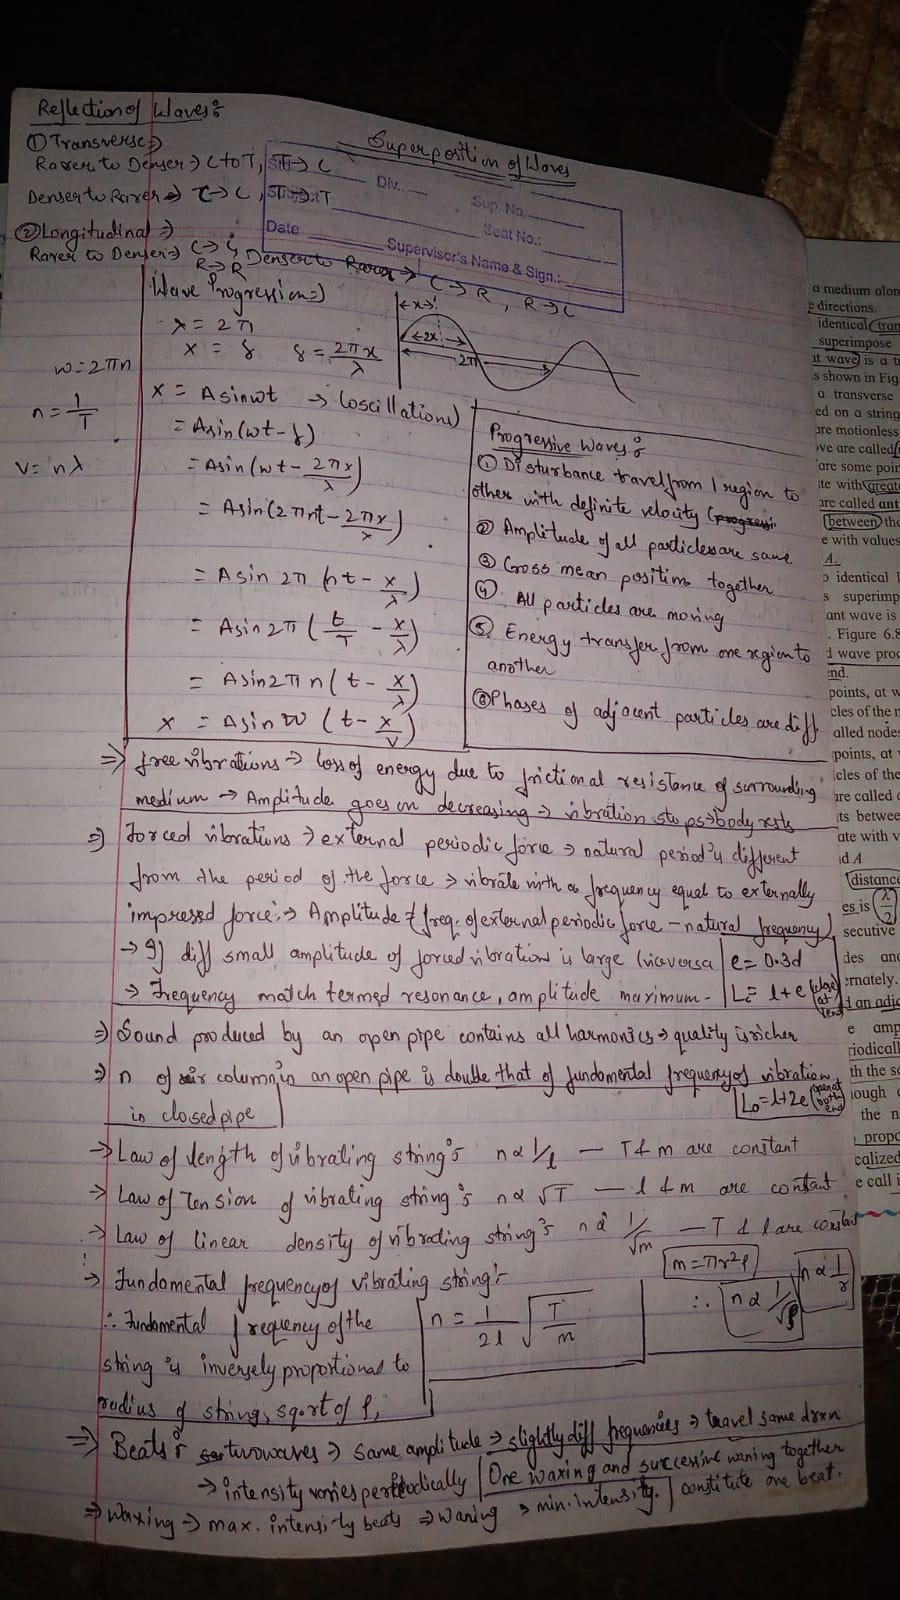 Reflection of Waves:
① Transverse ⇒
Rarer to Denser → C to T, T → C
Denser to Rarer → C → C, T → T
② Longitudinal ⇒
Rarer to Denser → C → C, R → R
Denser to Rarer → C → R, R → C
Superposition of Waves
Div.
Sup. No.
Subject
Seat No.:
Date
Supervisor's Name & Sign.:
Wave Progression ⇒
λ = 2π
x = δ δ = 2πx/λ
x
2x
2π
ω = 2πn
n = 1/T
V = nλ
x = A sin ωt → (oscillations)
= A sin (ωt - δ)
= A sin (ωt - 2πx/λ)
= A sin (2πnt - 2πx/x)
= A sin 2π (nt - x/λ)
= A sin 2π (t/T - x/λ)
= A sin 2π n (t - x/λ)
x = A sin ω (t - x/v)
Progressive Waves:
① Disturbance travel from 1 region to
other with definite velocity (progressi
② Amplitude of all particles are same
③ Cross mean position together
④ All particles are moving
⑤ Energy transfer from one region to
another
⑥ Phases of adjacent particles are diff
⇒ free vibrations → loss of energy due to frictional resistance of surrounding
medium → Amplitude goes on decreasing → vibration stops → body rests
⇒ Forced vibrations → external periodic force → natural period is different
from the period of the force → vibrate with a frequency equal to externally
impressed force → Amplitude ∝ (freq. of external periodic force - natural frequency)
→ If diff small amplitude of forced vibration is large (viceversa
→ Frequency match termed resonance, amplitude maximum-
e = 0.3d
Lc = l + e (close at 1 end)
⇒ Sound produced by an open pipe contains all harmonics → quality is richer
⇒ n of air column in an open pipe is double that of fundamental frequency of vibration
in closed pipe
Lo = l + 2e (open at both end)
→ Law of length of vibrating string: n ∝ 1/l — T & m are constant
→ Law of Tension of vibrating string: n ∝ √T — l & m are contant
→ Law of linear density of vibrating string: n ∝ 1/√m — T & l are constant
→ Fundamental frequency of vibrating string:-
m = πr²ρ
n = 1/2l √T/m
∴ n ∝ 1/√ρ n ∝ 1/r
∴ Fundamental frequency of the
string is inversely proportional to
radius of string, sqort of ρ,
⇒ Beats: two waves → same amplitude → slightly diff frequencies → travel same drxn
→ intensity varies periodically One waxing and successive waning together
constitute one beat.
⇒ waxing → max. intensity beats ⇒ waning → min. intensity.
a medium alon
e directions.
identical tran
superimpose
nt wave is a
s shown in Fig
a transverse
ed on a string
are motionless
ve are called
are some poin
te with great
are called ant
between the
e with values
A.
identical
superimp
ant wave is
. Figure 6.8
d wave proc
end.
points, at w
cles of the
alled node
points, at
icles of the
are called
ts betwee
ate with v
d A
distance
es is λ/2
secutive
des and
ernately.
d an adj
e amp
riodicall
th the s
ough
the n
propo
calized
e call i